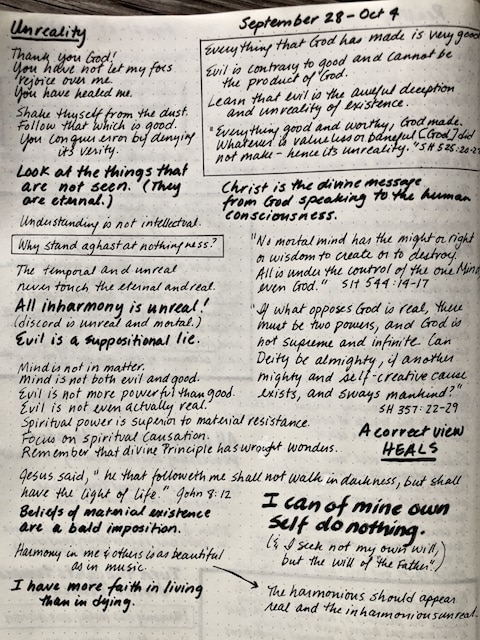 September 28 - Oct 4
Unreality
Thank you God!
You have not let my foes
rejoice over me.
You have healed me.
Shake thyself from the dust.
Follow that which is good.
You conquer error by denying
its verity.
Look at the things that
are not seen. (They
are eternal.)
Understanding is not intellectual.
Why stand aghast at nothingness?
The temporal and unreal
never touch the eternal and real.
All inharmony is unreal!
(discord is unreal and mortal.)
Evil is a suppositional lie.
Mind is not in matter.
Mind is not both evil and good.
Evil is not more powerful than good.
Evil is not even actually real.
Spiritual power is superior to material resistance.
Focus on spiritual causation.
Remember that divine Principle has wrought wonders.
Everything that God has made is very good
Evil is contrary to good and cannot be
the product of God.
Learn that evil is the aweful deception
and unreality of existence.
"Everything good and worthy, God made.
Whatever is valueless or baneful [God] did
not make - hence its unreality." SH 525:20-2
Christ is the divine message
from God speaking to the human
consciousness.
"No mortal mind has the might or right
or wisdom to create or to destroy.
All is under the control of the one Mind,
even God." SH 544:14-17
"If what opposes God is real, there
must be two powers, and God is
not supreme and infinite. Can
Deity be almighty, if another
mighty and self-creative cause
exists, and sways mankind?"
SH 357:22-29
A correct view
HEALS
Jesus said, "he that followeth me shall not walk in darkness, but shall
have the light of life." John 8:12
Beliefs of material existence
are a bald imposition.
Harmony in me & others is as beautiful
as in music.
I have more faith in living
than in dying.
I can of mine own
self do nothing.
(& I seek not my own will,
but the will of "the Father".)
The harmonious should appear
real and the inharmonious unreal.